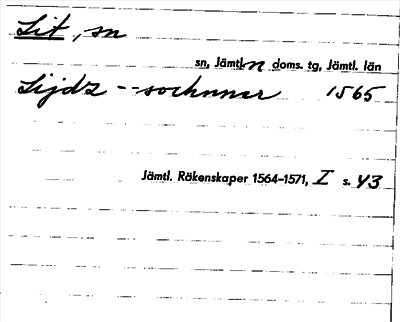 Lit, sn
sn, Jämtl. n doms. tg, Jämtl. län
Lijdz -- sochnner 1565
Jämtl. Räkenskaper 1564–1571, I s. 43